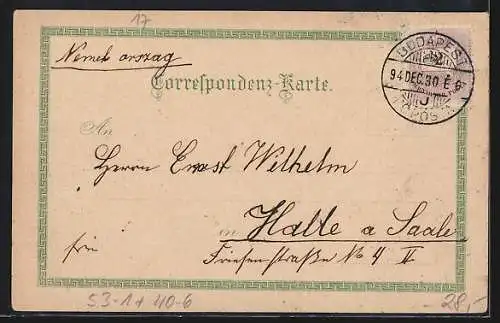 17
Nemet orszag
BUDAPEST
94 DEC. 30 E 6
FŐPOSTA
Correspondenz-Karte.
An
Herrn Ernst Wilhelm
in Halle a Saale
frei
Friesenstraße No 4 II
53-1+40-6
28,-